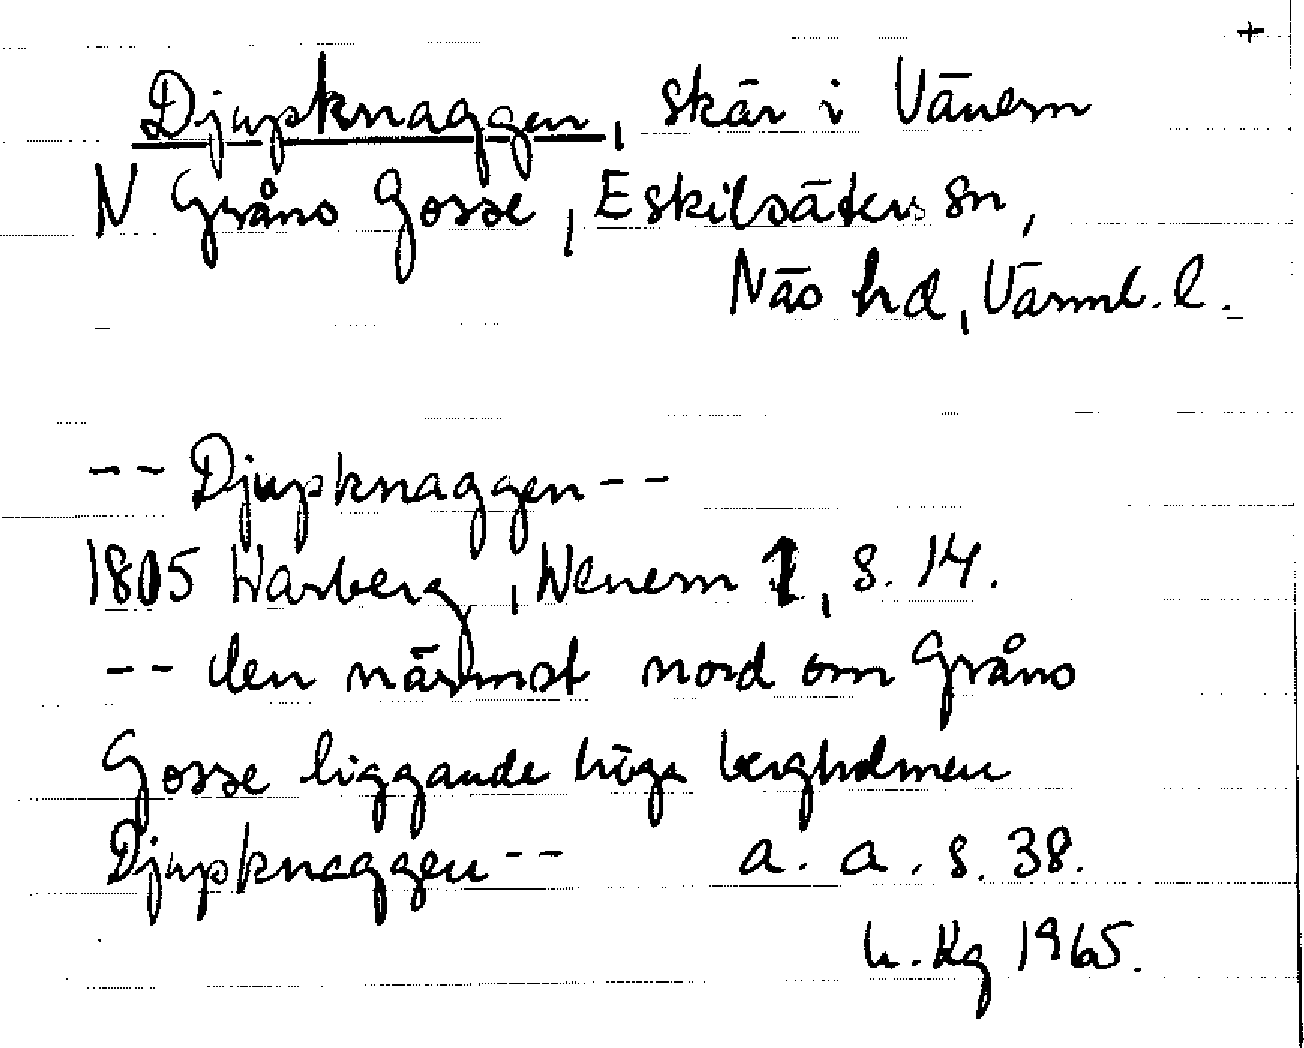 +
Djupknaggen, skär i Vänern
N Gråns Gosse, Eskilsäters sn,
Näs hd, Värml. l.
-- Djupknaggen --
1805 Warberg, Wenern 1, s. 14.
-- den närmst nord om Gråns
Gosse liggande höga bergholmen
Djupknaggen -- a. a. s. 38.
Kg 1965.